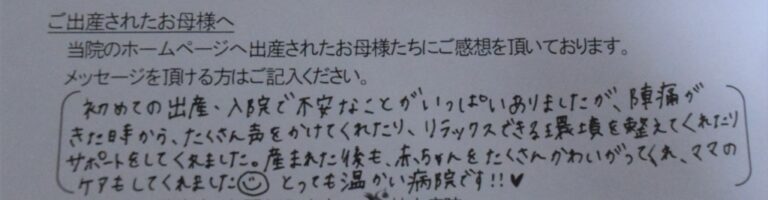 ご出産されたお母様へ
当院のホームページへ出産されたお母様たちにご感想を頂いております。
メッセージを頂ける方はご記入ください。
初めての出産・入院で不安なことがいっぱいありましたが、陣痛が
きた時から、たくさん声をかけてくれたり、リラックスできる環境を整えてくれたり
サポートをしてくれました。産まれた後も、赤ちゃんをたくさんかわいがってくれ、ママの
ケアもしてくれました☺ とっても温かい病院です!!♥